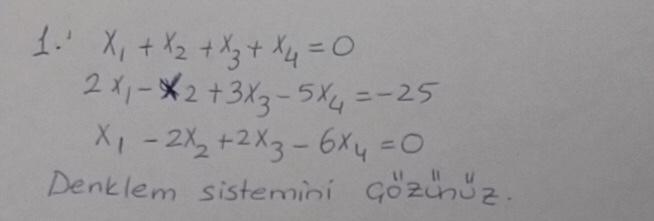 1. x₁ + x₂ + x₃ + x₄ = 0
2x₁ - x₂ + 3x₃ - 5x₄ = -25
x₁ - 2x₂ + 2x₃ - 6x₄ = 0
Denklem sistemini çözünüz.